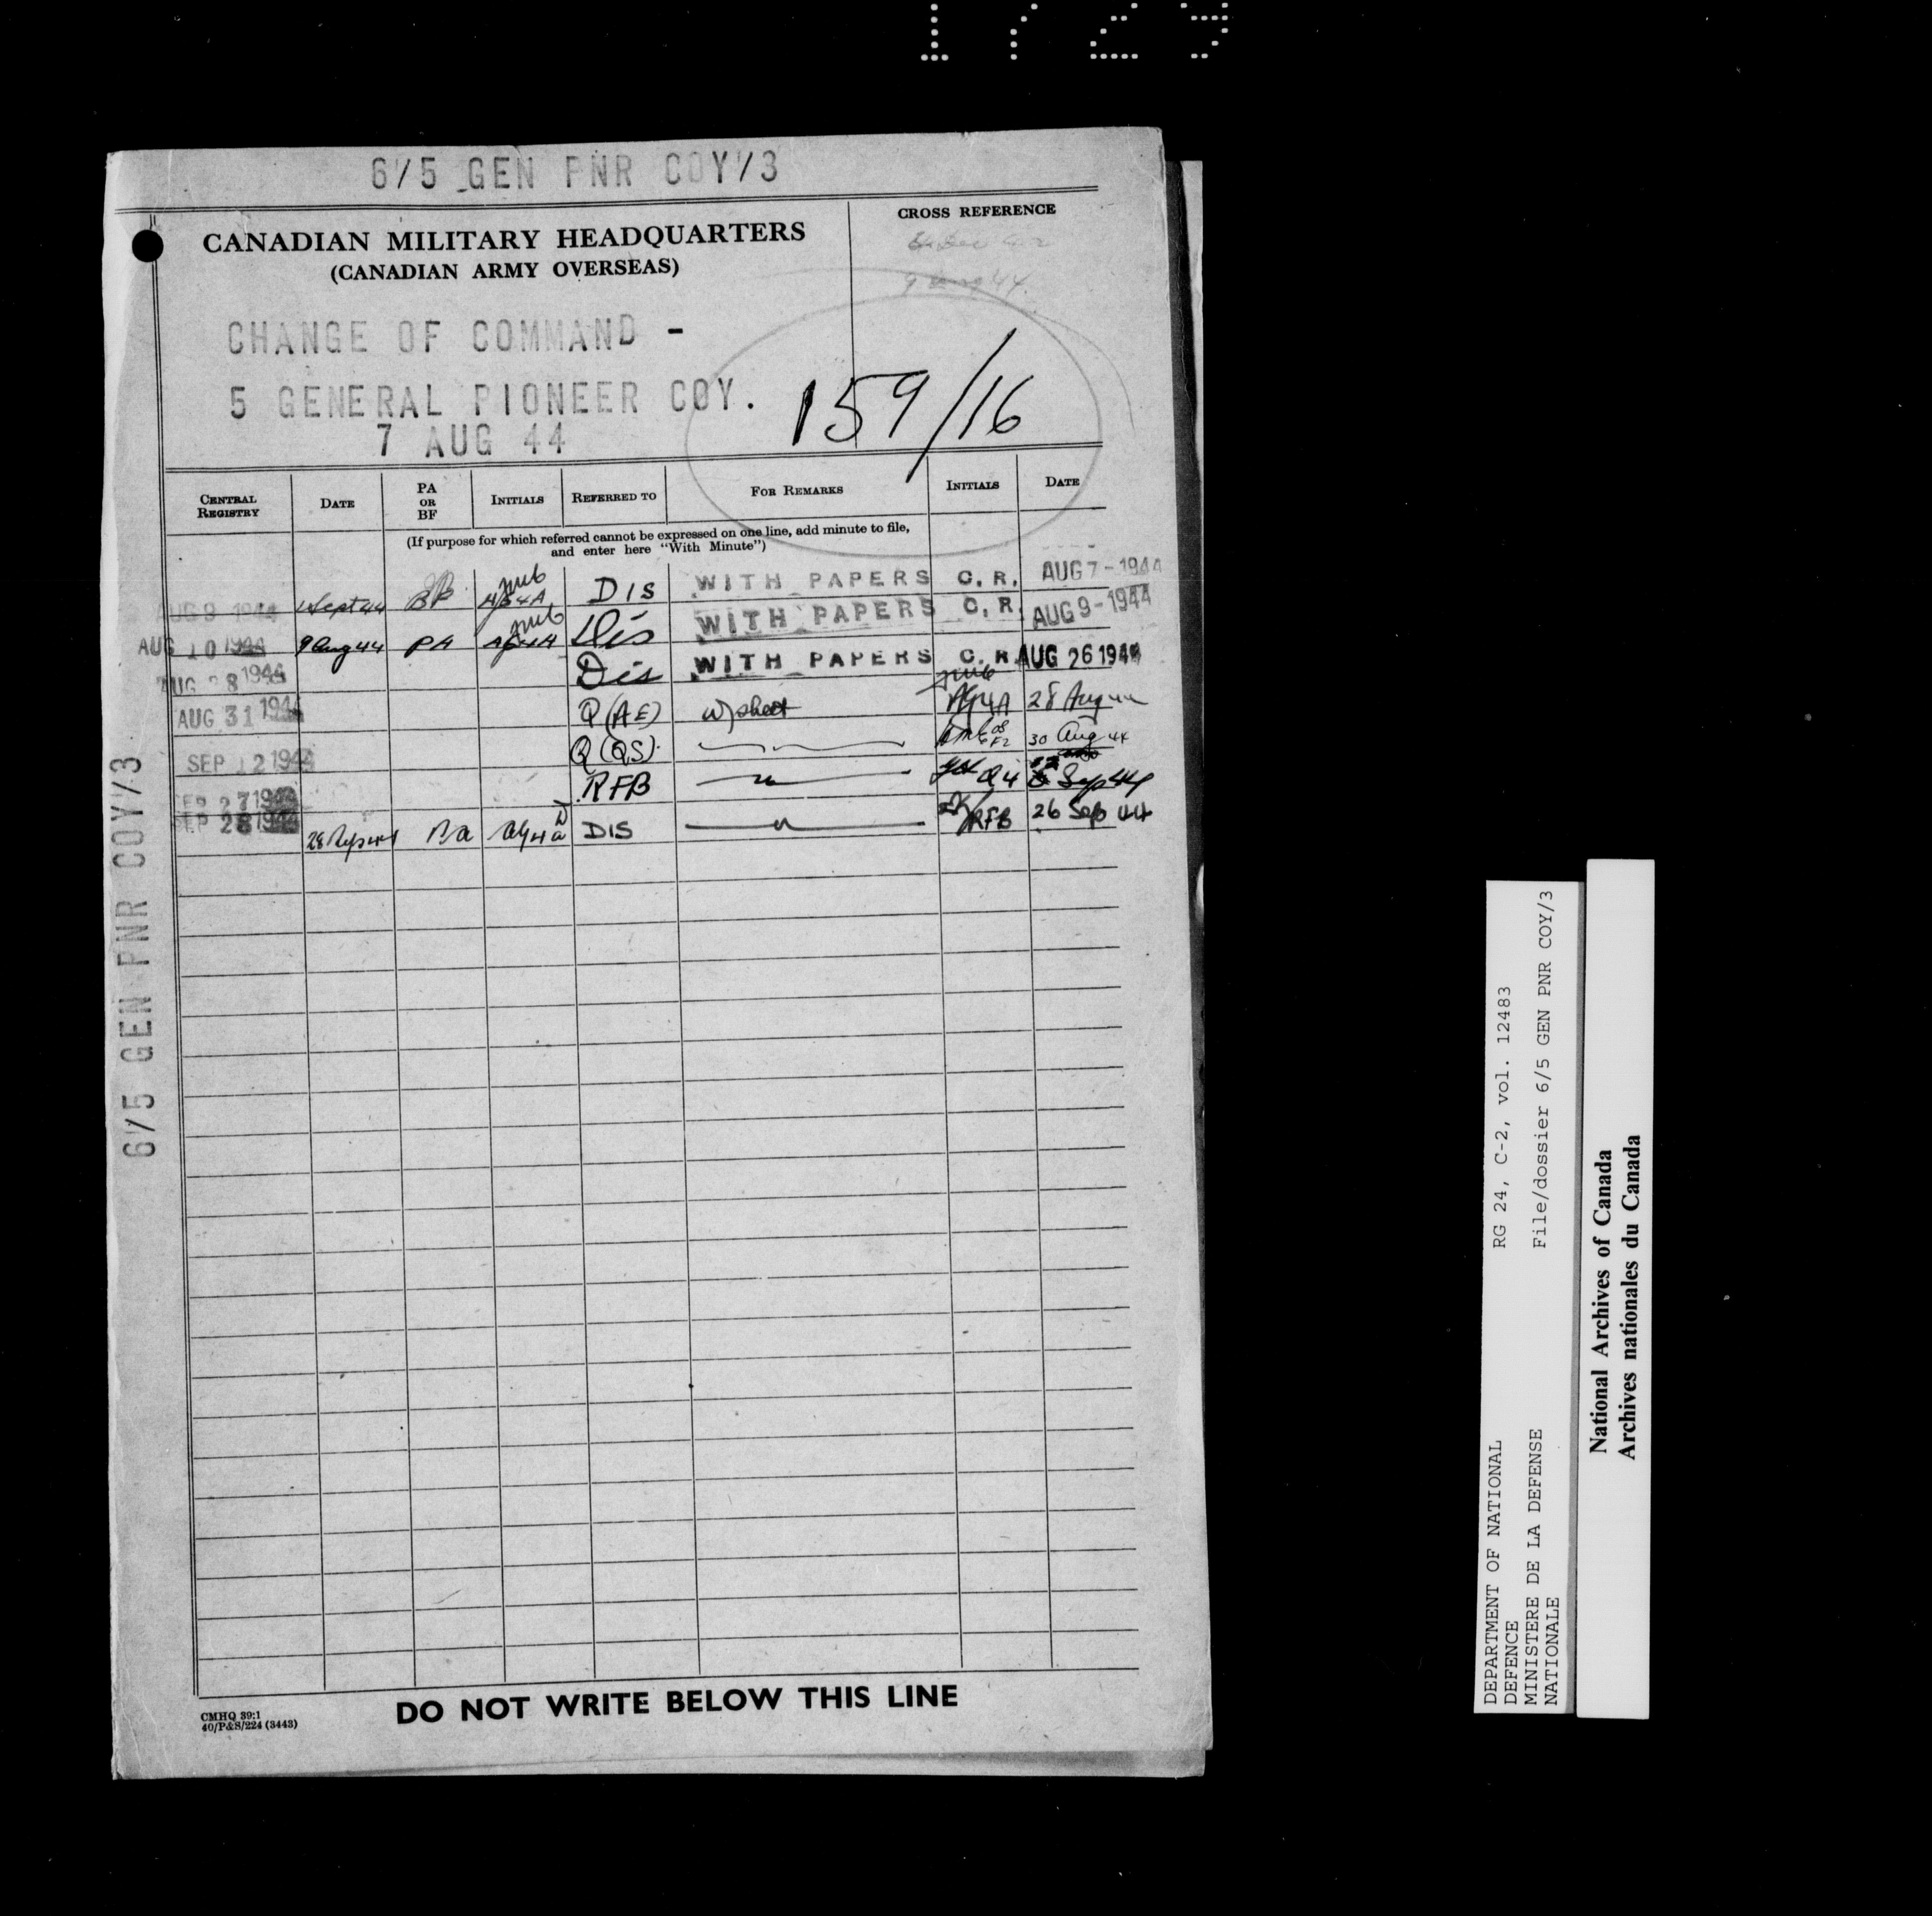 1729
6/5 GEN PNR COY/3
CANADIAN MILITARY HEADQUARTERS
(CANADIAN ARMY OVERSEAS)
CROSS REFERENCE
9 Aug 44.
CHANGE OF COMMAND -
5 GENERAL PIONEER COY.
7 AUG 44
159/16
CENTRAL REGISTRY DATE PA OR BF INITIALS REFERRED TO FOR REMARKS INITIALS DATE
(If purpose for which referred cannot be expressed on one line, add minute to file,
and enter here "With Minute")
AUG 9 1944 1 Sept 44 BF AG4A DIS WITH PAPERS C.R. AUG 7-1944
AUG 10 1944 9 Aug 44 PA AG4A Dis WITH PAPERS C.R. AUG 9-1944
AUG 28 1944 Dis WITH PAPERS C.R. AUG 26 1944
AUG 31 1944 Q(AE) w/sheet AG4A 28 Aug 44
Q(QS). 30 Aug 44
SEP 12 1944 RFB Q4 Sep 44
SEP 27 1944
SEP 28 1944 28 Sep 44 PA AG4A DIS RFB 26 Sep 44
6/5 GEN PNR COY/3
DO NOT WRITE BELOW THIS LINE
CMHQ 39:1
40/P&S/224 (3443)
DEPARTMENT OF NATIONAL
DEFENCE
MINISTERE DE LA DEFENSE
NATIONALE
RG 24, C-2, vol. 12483
File/dossier 6/5 GEN PNR COY/3
National Archives of Canada
Archives nationales du Canada